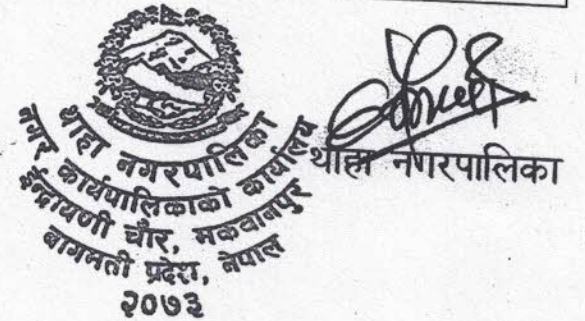 थाहा नगरपालिका
नगर कार्यपालिकाको कार्यालय
ईन्द्रायणी चौर, मकवानपुर
बागमती प्रदेश, नेपाल
२०७३
थाहा नगरपालिका